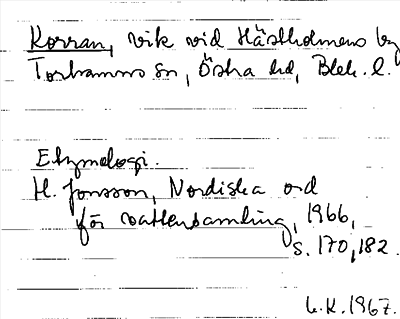 Korran, vik vid Hästholmens by
Torhamns sn, Östra hd, Blek. l.
Etymologi.
H. Jonsson, Nordiska ord
för vattensamling, 1966,
s. 170, 182.
G.K. 1967.